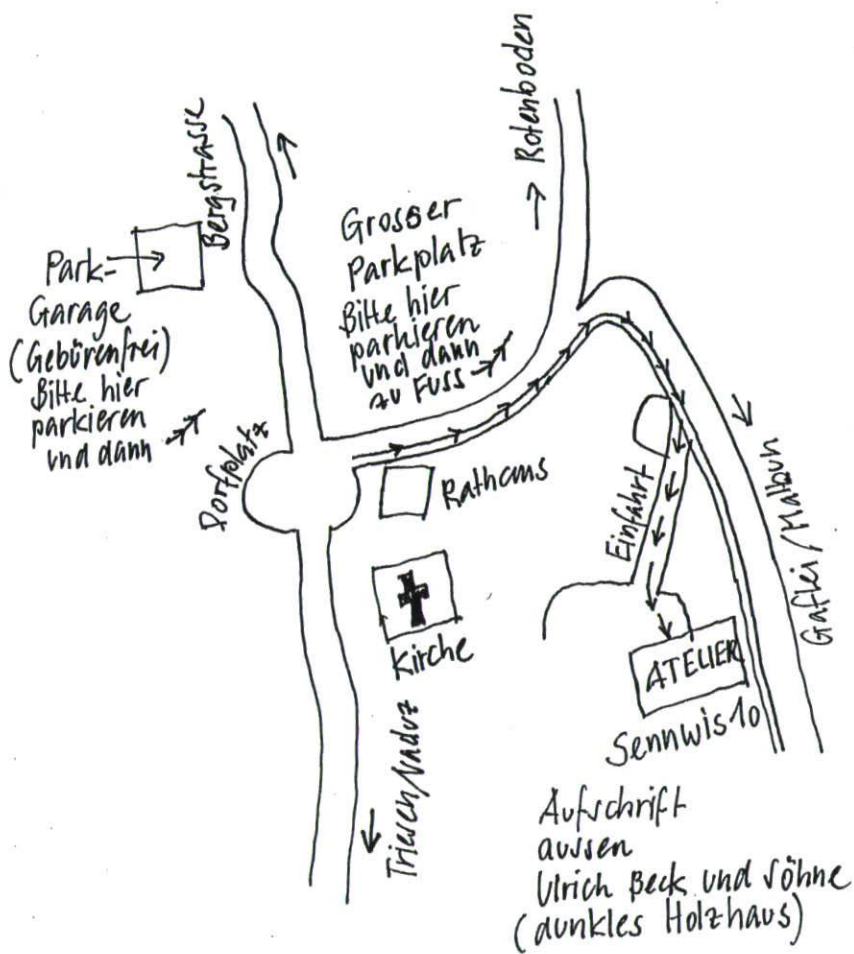 Bergstrasse
Rotenboden
Park-
Garage
(Gebürenfrei)
Bitte hier
parkieren
und dann
Grosser
Parkplatz
Bitte hier
parkieren
und dann
zu Fuss
Dorfplatz
Rathaus
Einfahrt
Gaflei/Malbun
Kirche
ATELIER
Sennwis 10
Triesen/Vaduz
Aufschrift
aussen
Ulrich Beck und Söhne
(dunkles Holzhaus)